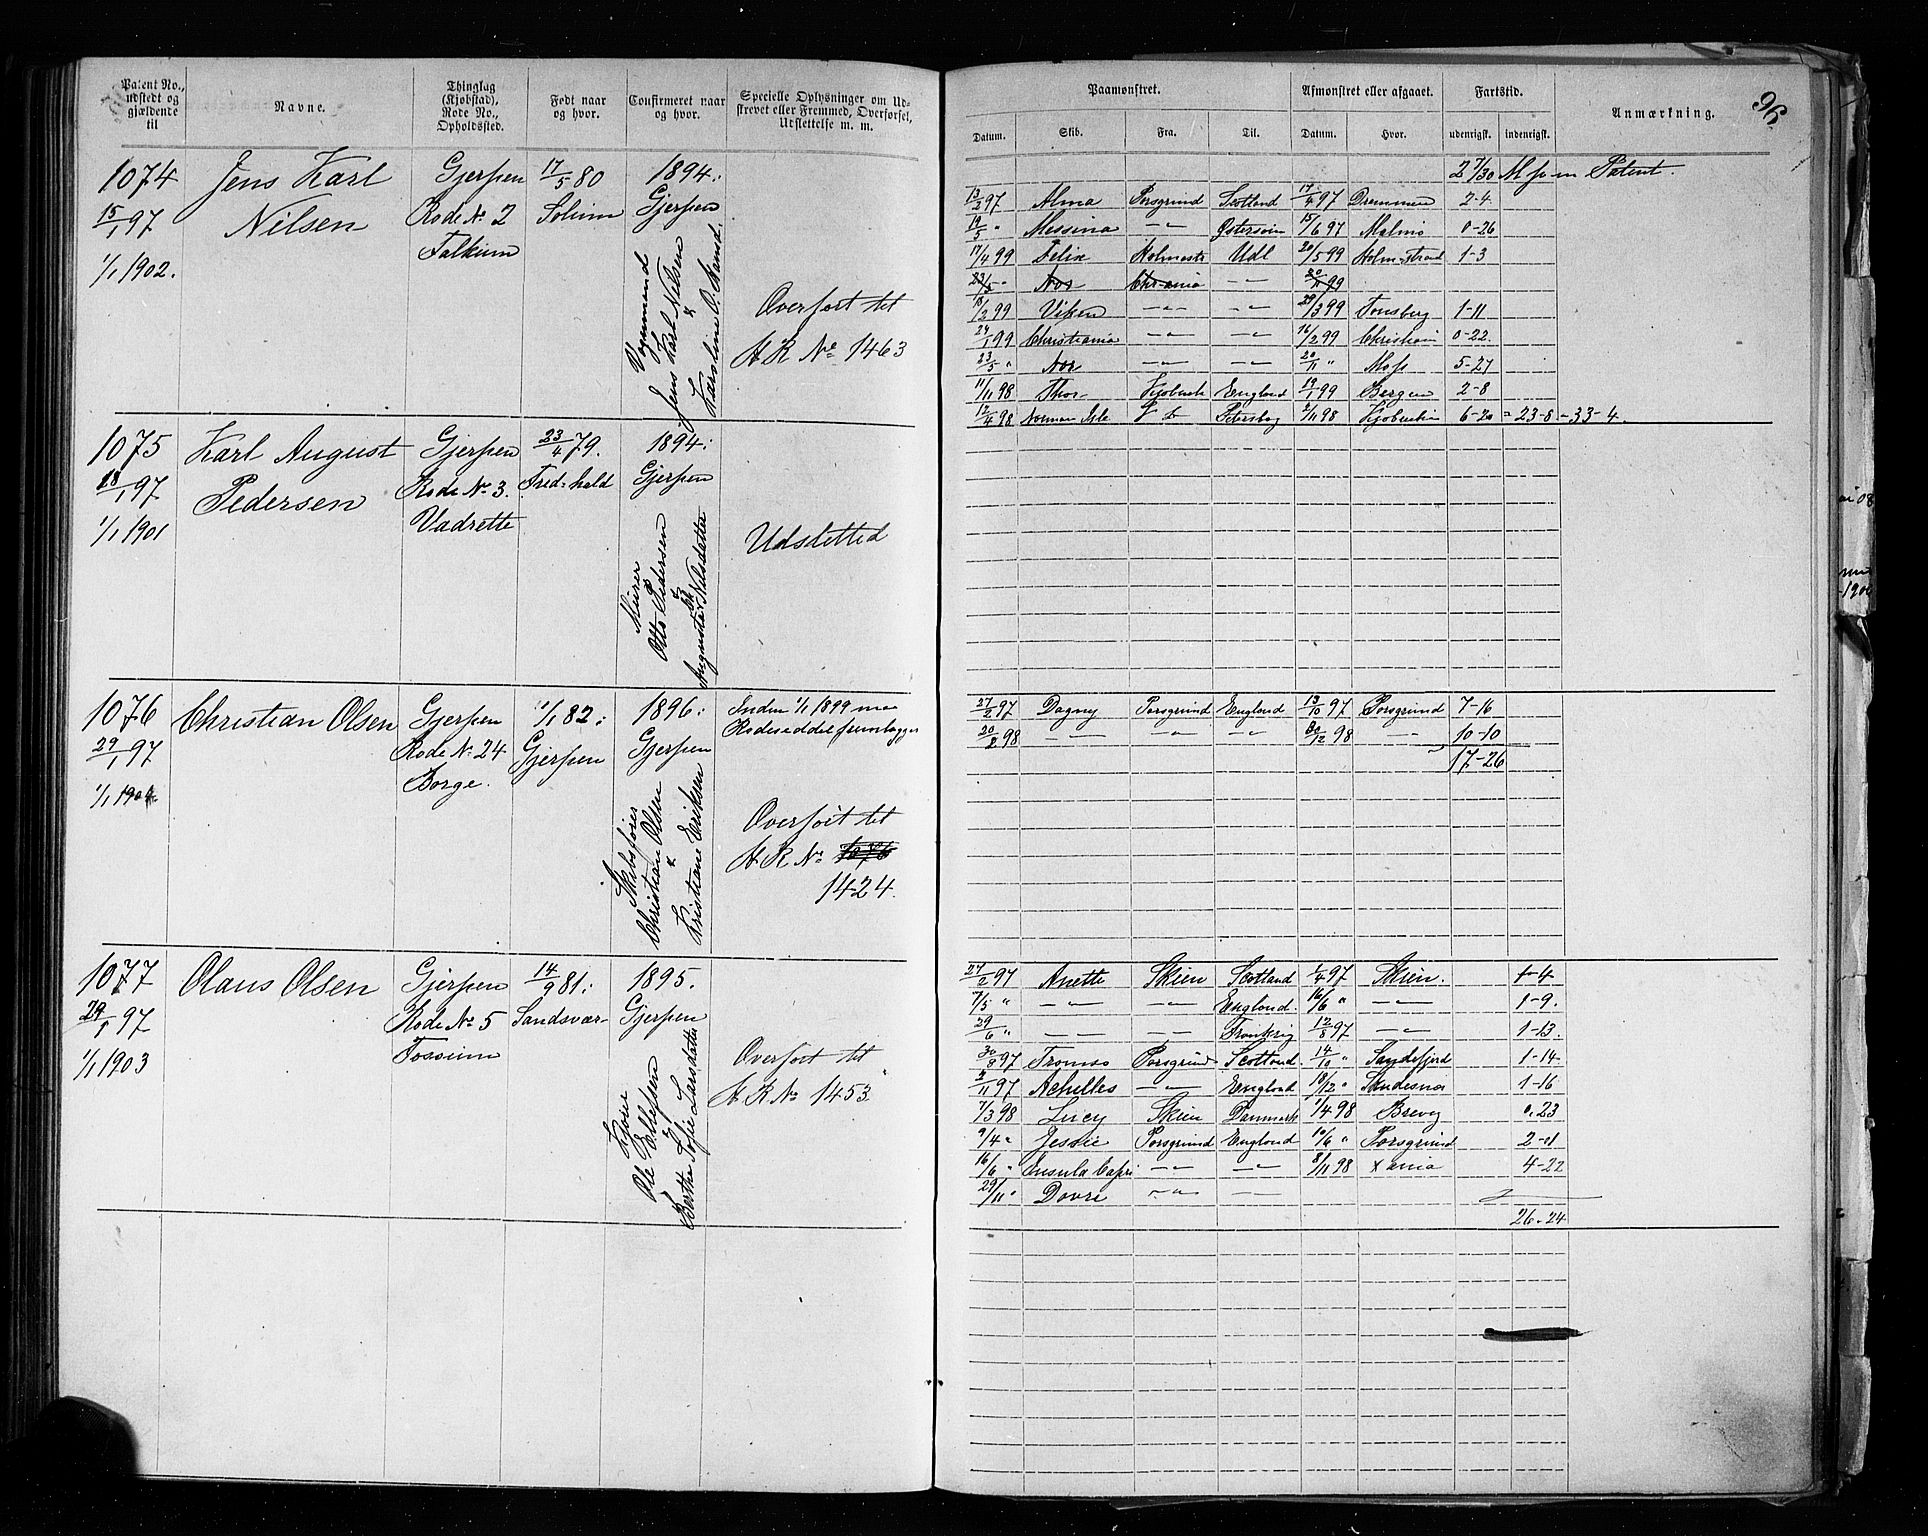 Patent No., udstedt og gjældende til
Navne.
Thinglag (Kjøbstad), Rode No., Opholdssted.
Født naar og hvor.
Confirmeret naar og hvor.
Specielle Oplysninger om Udskrevet eller Fremmed, Overførsel, Udslettelse m. m.
1074
15/1 97
1/1 1902.
Jens Karl
Nilsen
Gjerpen
Rode No. 2
Falkum
17/5 80
Solum
1894:
Gjerpen
Vognmand
Jens Karl Nilsen
&
Overført til
H R No 1463
1075
18/1 97
1/1 1901
Karl August
Pedersen
Gjerpen
Rode No. 3.
Vadrette
23/4 79.
Fred-hald
1894:
Gjerpen
Murer
Otto Pedersen
&
Augusta Nilsdatter
Udsletted
1076
29/1 97
1/1 1904
Christian Olsen
Gjerpen
Rode No. 24
Borge.
1/1 82:
Gjerpen
1896:
Gjerpen
Skibsfører
Christian Olsen
&
Kristiane Eriksen
Inden 1/1 1899 maa
Rodeseddel fremlægges
Overført til
H R No 1076
1424.
1077
29/1 97
1/1 1903
Olaus Olsen
Gjerpen
Rode No 5
Fossum
14/9 81:
Sandsvær
1895.
Gjerpen
Ole Ellefsen
&
Berthe Sofie Larsdatter
Overført til
H. R No 1453
96
Paamønstret.
Afmønstret eller afgaaet.
Fartstid.
Anmærkning.
Datum.
Skib.
Fra.
Til.
Datum.
Hvor.
udenrigsk.
indenrigsk.
2 7/30 M f m Patent.
13/2 97 Alma Porsgrund Scotland 17/4 97 Drammen 2-4
19/5 " Messina —"— Østersøen 15/6 97 Malmø 0-26
17/4 99 Felix Holmestr Udl 20/5 99 Holm-strand 1-3
23/5 " Nor Chr-ania —"— 20/11 99
18/2 99 Viken —"— —"— 29/3 99 Tønsberg 1-11
24/1 99 Christiania —"— —"— 16/2 99 Christiania 0-22.
23/5 " Nor —"— —"— 20/11 " Moss 5-27
11/11 98 Thor England 19/1 99 Bergen 2-8
12/4 98 Norman Isle 2/11 98 6-20 = 23-8 - 33-4.
27/2 97 Dagny Porsgrund England 13/10 97 Porsgrund 7-16
20/2 98 —"— —"— —"— 30/12 98 —"— 10-10
17-26
27/2 97 Anette Skien Scotland 1/4 97 Skien. 1-4
7/5 " —"— —"— England. 16/6 " —"— 1-9.
29/6 " —"— —"— Frankrig 12/8 97 —"— 1-13.
30/8 97 Tromsø Porsgrund Scotland. 14/10 " Sandefjord 1-14
2/11 97 Achilles —"— England 18/12 " Sandesnæs 1-16
7/3 98 Lucy Skien Danmark 1/4 98 Brevig 0.23
9/4 " Jessie Porsgrund England 10/6 " Porsgrund 2-01
16/6 " Insula Capri —"— —"— 8/11 98 Xania 4-22
29/11 " Dovre —"— —"—
26-24